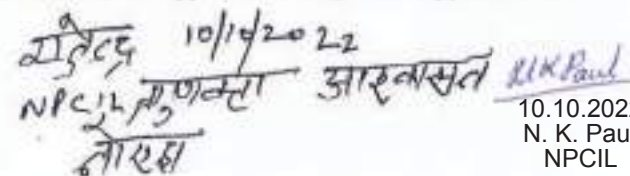 राजेंद्र 10/10/2022
NPCIL गुणवत्ता आश्वासन NK Paul
10.10.202
N. K. Pau
NPCIL